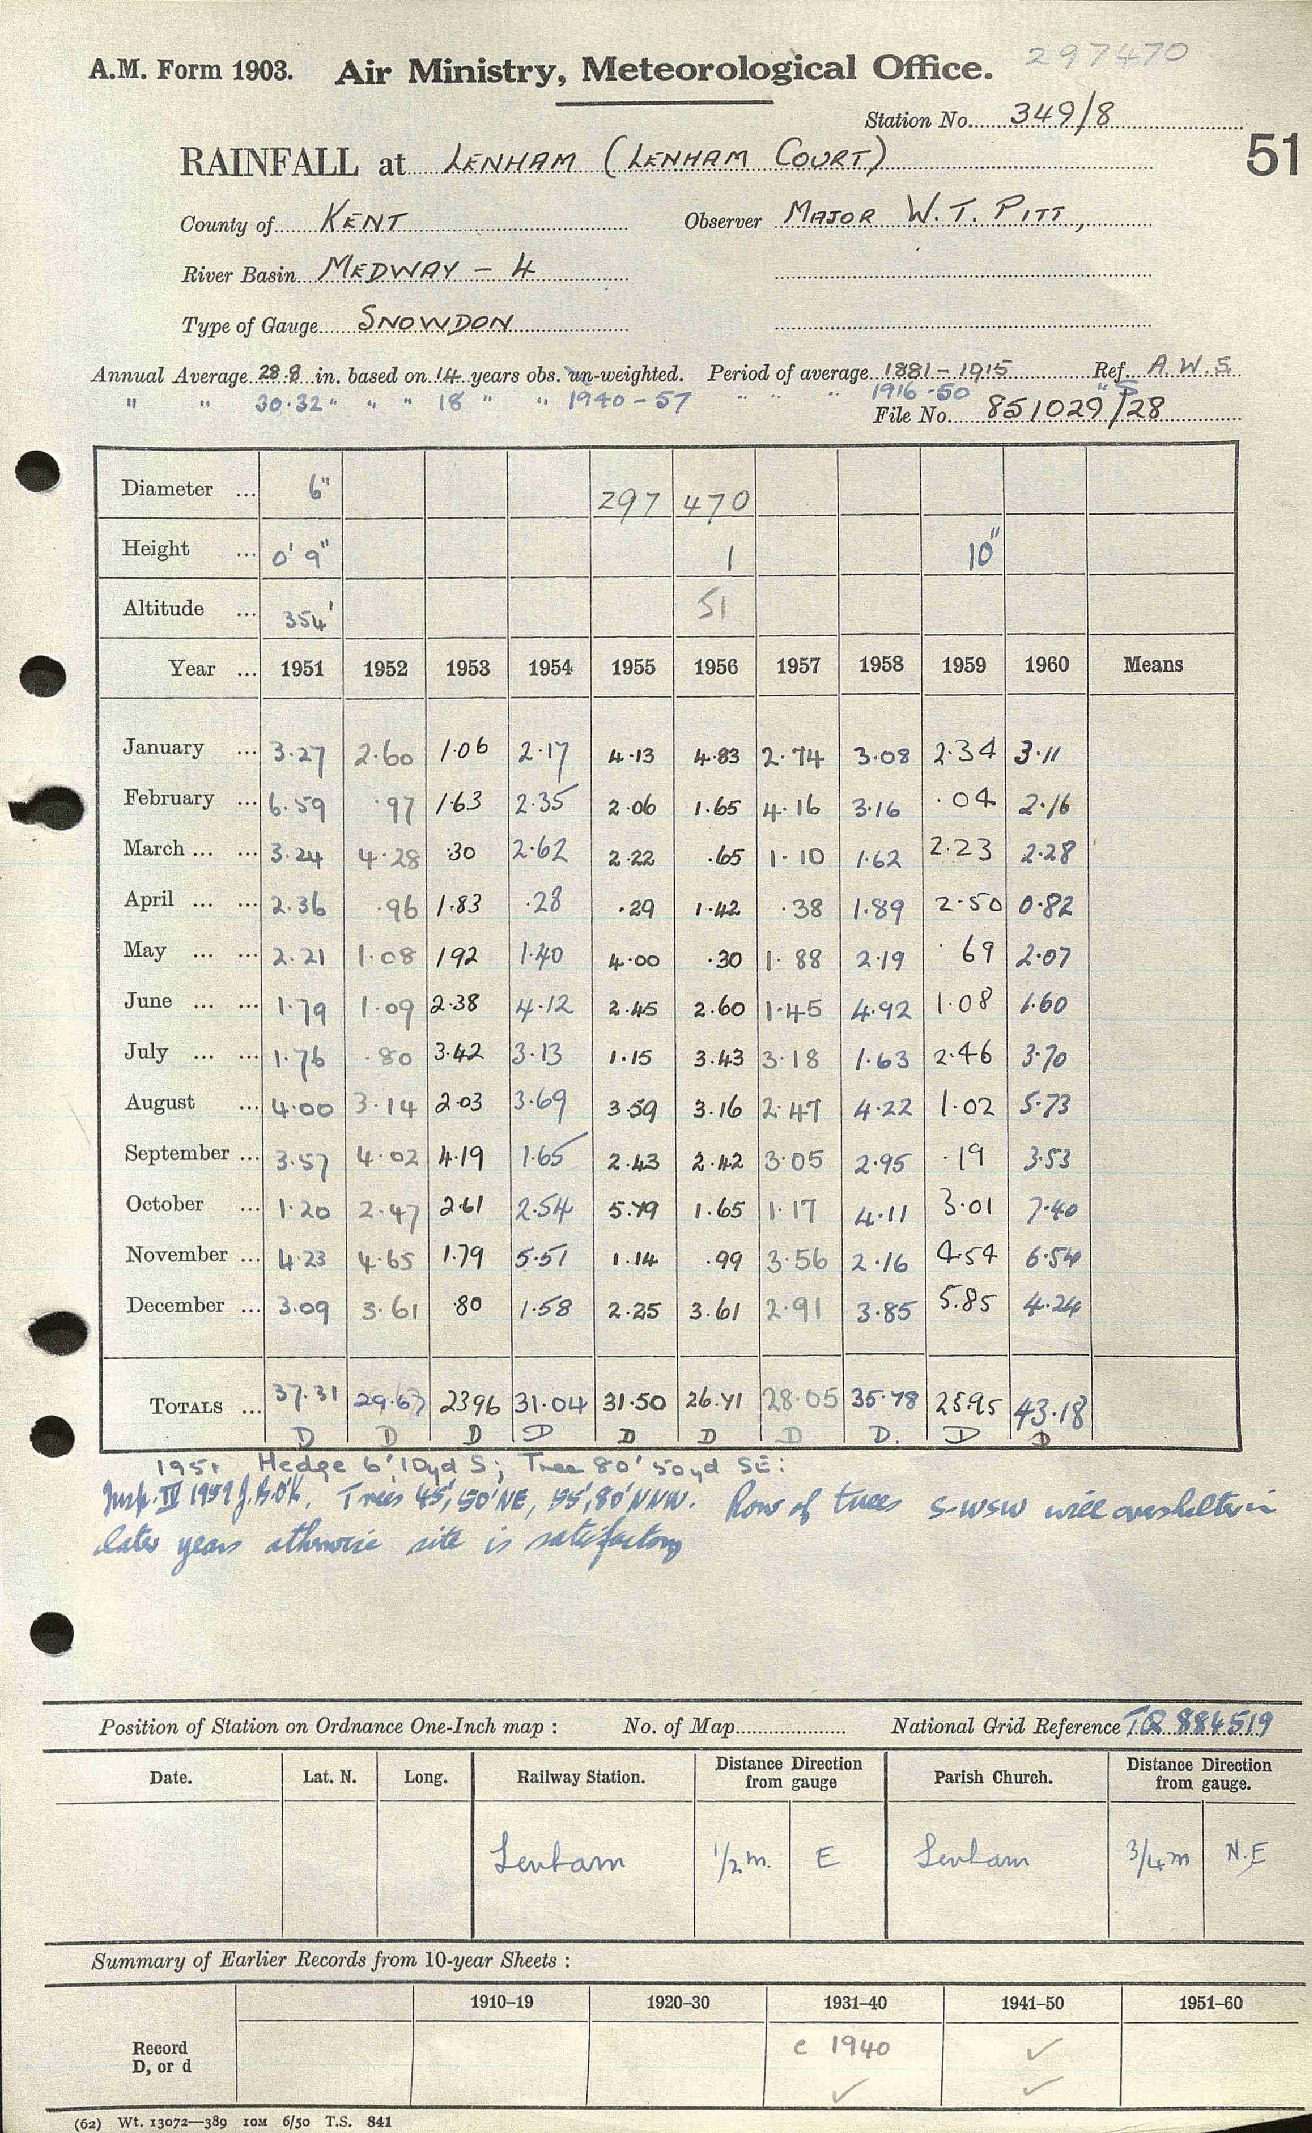 297470
A.M. Form 1903. Air Ministry, Meteorological Office.
Station No. 349/8
51
RAINFALL at LENHAM (LENHAM COURT)
County of KENT Observer MAJOR W. T. PITT,
River Basin MEDWAY - 4
Type of Gauge SNOWDON
Annual Average 28.8 in. based on 14 years obs. un-weighted. Period of average 1881-1915 Ref. A.W.S
" " 30.32 " " " 18 " " 1940-57 " " " 1916-50 " S
File No. 851029/28
Diameter ... 6" 297 470
Height ... 0' 9" 1 10"
Altitude ... 354' 51
Year ... 1951 1952 1953 1954 1955 1956 1957 1958 1959 1960 Means
January ... 3.27 2.60 1.06 2.17 4.13 4.83 2.74 3.08 2.34 3.11
February ... 6.59 .97 1.63 2.35 2.06 1.65 4.16 3.16 .04 2.16
March ... ... 3.24 4.28 .30 2.62 2.22 .65 1.10 1.62 2.23 2.28
April ... ... 2.36 .96 1.83 .28 .29 1.42 .38 1.89 2.50 0.82
May ... ... 2.21 1.08 192 1.40 4.00 .30 1.88 2.19 .69 2.07
June ... ... 1.79 1.09 2.38 4.12 2.45 2.60 1.45 4.92 1.08 1.60
July ... ... 1.76 .80 3.42 3.13 1.15 3.43 3.18 1.63 2.46 3.70
August ... 4.00 3.14 2.03 3.69 3.59 3.16 2.47 4.22 1.02 5.73
September ... 3.57 4.02 4.19 1.65 2.43 2.42 3.05 2.95 .19 3.53
October ... 1.20 2.47 2.61 2.54 5.79 1.65 1.17 4.11 3.01 7.40
November ... 4.23 4.65 1.79 5.51 1.14 .99 3.56 2.16 4.54 6.54
December ... 3.09 3.61 .80 1.58 2.25 3.61 2.91 3.85 5.85 4.24
TOTALS ... 37.31 29.67 2396 31.04 31.50 26.71 28.05 35.78 25.95 43.18
D D D D D D D D. D D
1951 Hedge 6', 10yd S; Tree 80' 50yd SE:
Insp. IV 1959 Trees 45', 50' NE, 55', 80' NNW. Row of trees S-WSW will overshelter in
later years otherwise site is satisfactory
Position of Station on Ordnance One-Inch map : No. of Map National Grid Reference TQ 884519
Date. Lat. N. Long. Railway Station. Distance from gauge Direction Parish Church. Distance from gauge. Direction
Lenham 1/2 m. E Lenham 3/4 m N.E
Summary of Earlier Records from 10-year Sheets :
1910-19 1920-30 1931-40 1941-50 1951-60
Record
D, or d
c 1940 ✓
✓ ✓
(62) Wt. 13072—389 10M 6/50 T.S. 841